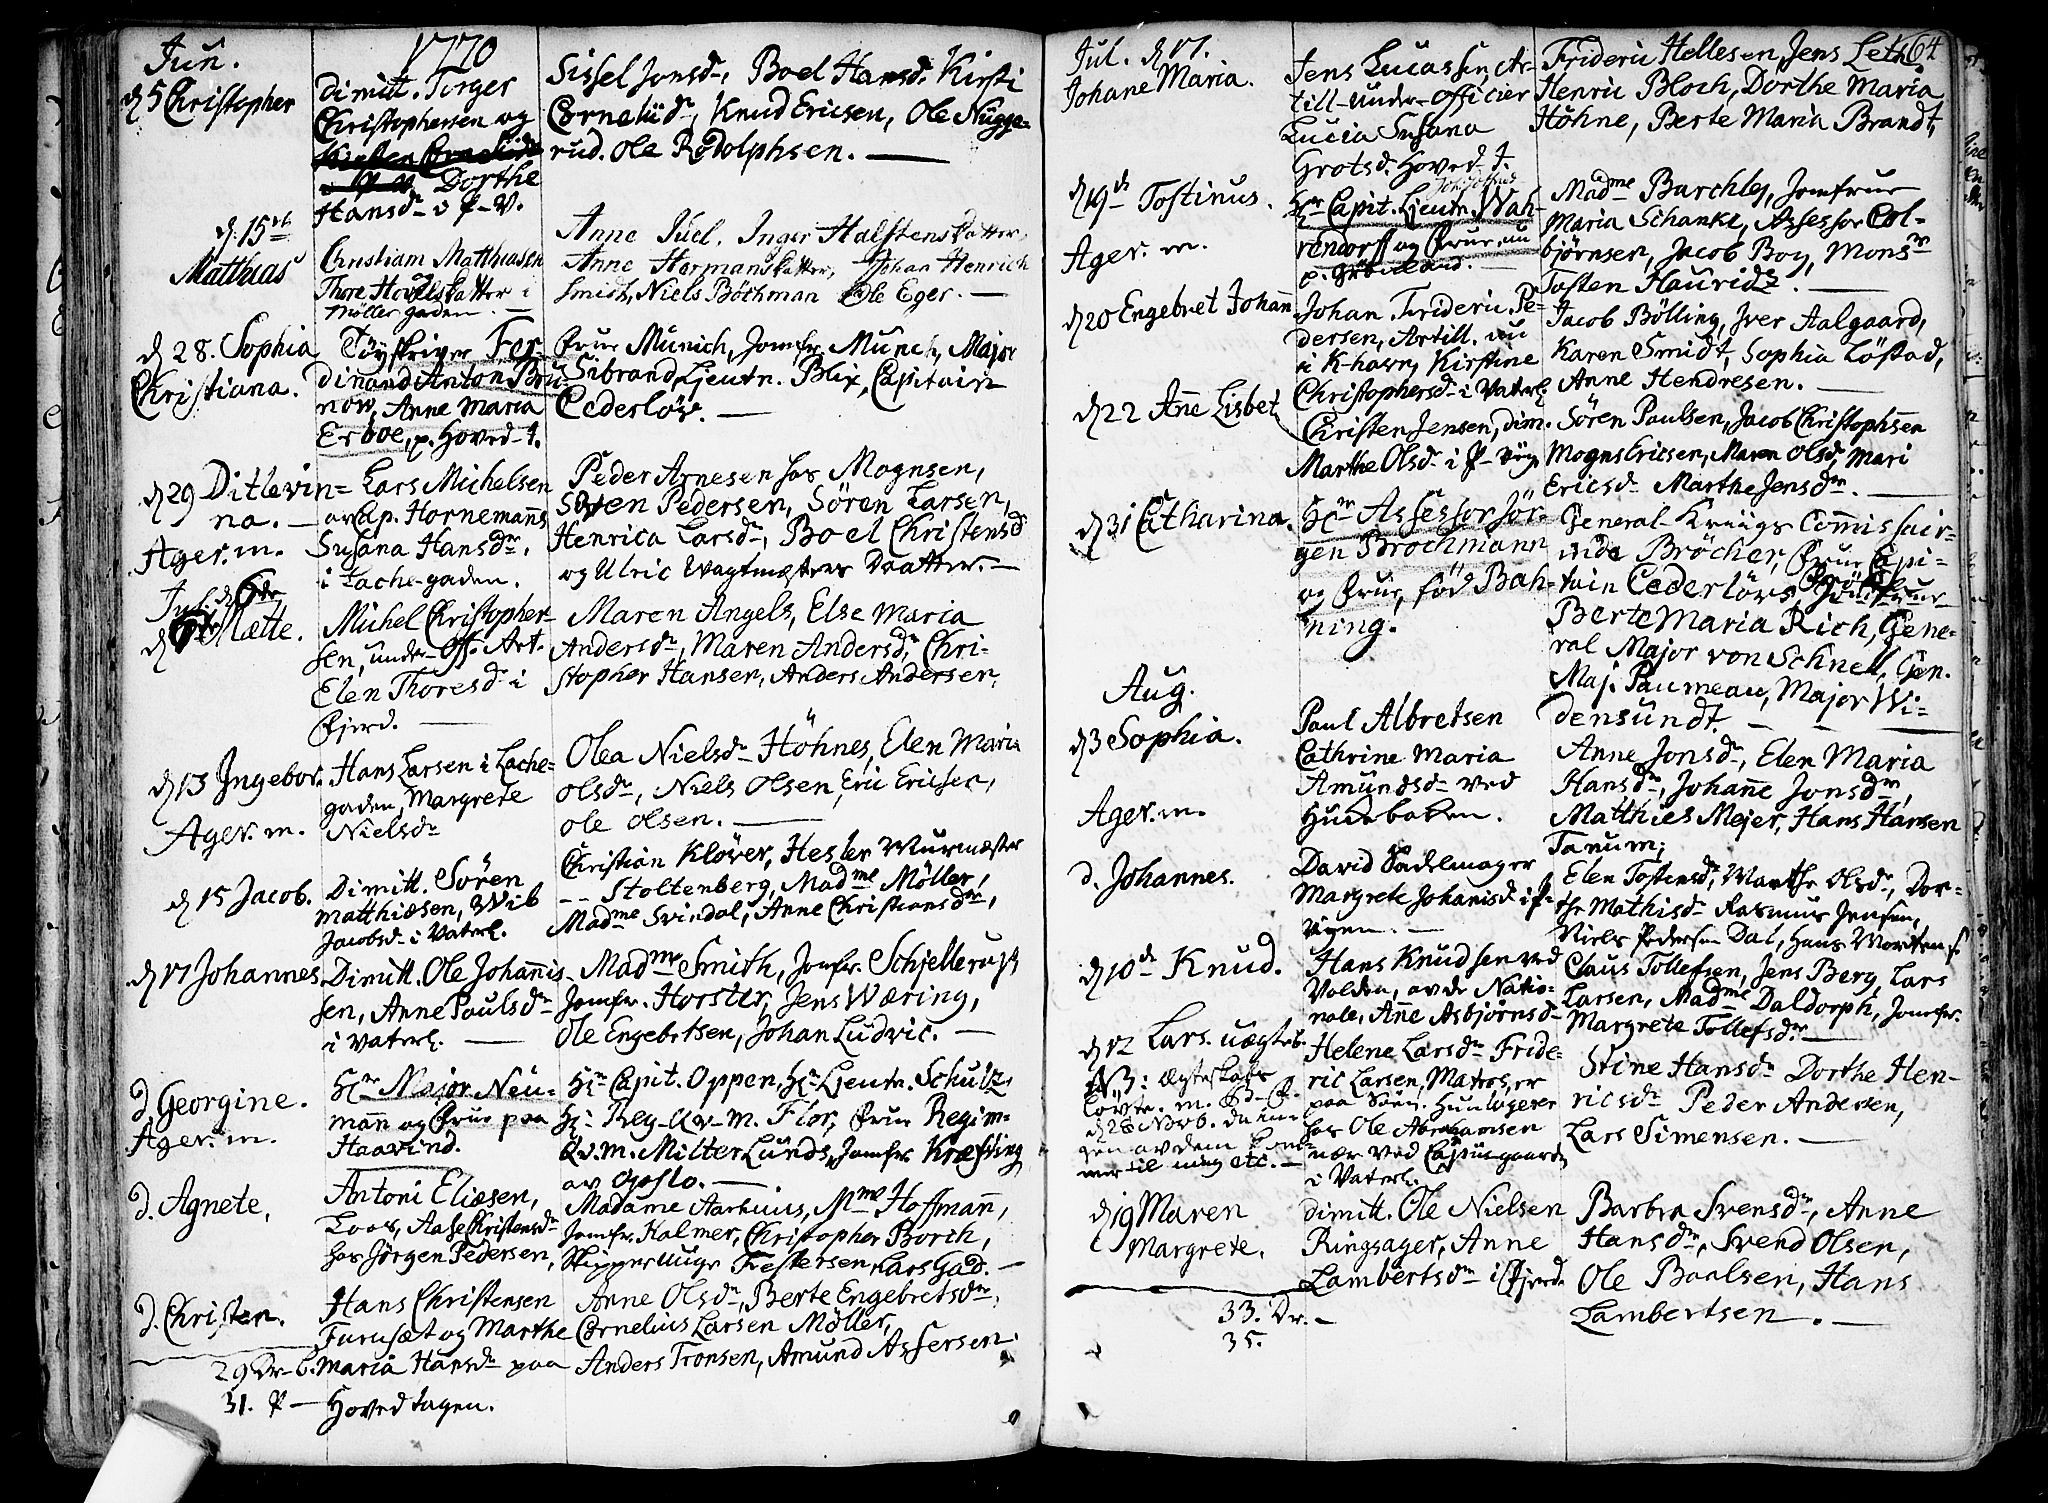 Jun.
1770
d 5 Christopher
Dimitt. Torger
Christophersen og
Dorthe
Hansdr i P-V.
Sissel Jonsd, Boel Hansd, Kirsti
Corneliid, Knud Ericsen, Ole Nugge-
rud. Ole Rodolphsen. —
d. 15de
Matthias
Christiam Matthiasen
og
Thore Hovelsdatter i
Möller gaden. —
Anne Juel. Inger Halstensdatter,
Anne Hermansdatter, Johan Henrich
Smidt, Niels Böthman Ole Eger. —
d 28. Sophia
Christiana.
Töyskriver Fer-
dinand Anton Bru-
now, Anne Maria
Erboe, p. Hoved-t.
Frue Munich, Jomfr. Munch, Major
Sibrand, Ljeutn. Blix, Capitain
Cederlöv. —
d 29 Ditlevin=
na. —
Ager. m.
Lars Michelsen
av Cap. Hornemanns
Susana Hansdr,
i Lache-gaden.
Peder Arnesen hos Mognsen,
Soren Pedersen, Sören Larsen,
Henrica Larsd, Boel Christensd
og Ulric Vagtmesters Daatter. —
Jul. d 6de
d Mætte.
Michel Christopher-
sen, under-Off. Art.
Elen Thoresd i
Fjerd. —
Maren Angels, Else Maria
Andersdr, Maren Andersd, Chri-
stopher Hansen, Anders Andersen,
d 13 Ingebor.
Ager. m.
Hans Larsen i Lache-
gaden, Margrete
Nielsdr
Olea Nielsdr Höhnes, Elen Maria
Olsdr, Niels Olsen, Eric Ericsen,
Ole Olsen. —
d 15 Jacob.
Dimitt. Sören
Matthiesen, Wib
Jacobsd i Vaterl.
Christian Klöver, Hesler Murmæster
-- Stoltenberg, Madme Möller,
Madme Svindal, Anne Christiansdr,
d 17 Johannes
Dimitt. Ole Johannis-
sen, Anne Paulsdr
i Vaterl. —
Madme Smith, Jomfr. Schjellerup
Jomfr. Horster, Jens Wæring,
Ole Engebretsen, Johan Ludvic. —
d. Georgine.
Ager. m.
Hr Major Neu-
mann og Frue paa
Haavind.
Hr Capit. Oppen, Hr Ljeutn. Schultz,
Hr Reg-Qv-m. Flor, Frue Regim-
Qv. m. Milter Lunds, Jomfr. Kræfting
av Opslo. —
d. Agnete,
Antoni Eliesen,
Loos, Aase Christensdr
hos Jörgen Pedersen,
Madame Aarhuus, Mme Hoffmann,
Jomfr. Kalmer, Christopher Borch,
Skipper Festersen, Lars Gad. —
d. Christen.
Hans Christensen
Furusæt og Marthe
Maria Hansdr paa
Hovedtagen.
Anne Olsdr, Berte Engebretsdr,
Cornelius Larsen Möller,
Anders Tronsen, Amund Assersen.
29 Dr-b.
31. P —
64
Jul. d 17.
Johane Maria.
Jens Lucassen Ar-
till-under-officier
Lucia Susana
Grotsd. Hoved-t.
Frideric Hellesen, Jens Leth,
Henric Bloch, Dorthe Maria
Höhne, Berte Maria Brandt,
d 19de Tostinus.
Ager. m.
Hr Capit. Ljeutn. Wah-
rendorff og Frue, nu
Madme Barchley, Jomfrue
Maria Schanke, Assessor Col-
björnsen, Jacob Boy, Monsr
Tosten Hauridz. —
d 20 Engebret Johann
Johan Frideric Pe-
dersen, Artill. nu
i K-havn, Kirstine
Christophersd i Vaterl.
Jacob Bölling, Iver Aalgaard,
Karen Smidt, Sophia Löstad,
Anne Hendresen. —
d 22 Ane Lisbet
Christen Jensen, dim.
Marthe Olsdr i P-Vign
Sören Paulsen, Jacob Christophsen
Mogns Ericsen, Maren Olsd, Mari
Ericsdr Marthe Jensdr. —
d 31 Catharina.
Hr Assessor Jör-
gen Brochmann
og Frue, född Bah-
ning.
General-Kriigs Commissair-
inde Bröcher, Frue Capi-
tain Cederlövs, Jomfrue
Berte Maria Rich, Gene-
ral Major von Schnell, Gen.
Maj. Paumeau, Major Wi-
densundt. —
Aug.
d 3 Sophia.
Ager. m.
Paul Albretsen
Cathrine Maria
Amundsdr ved
Hunebaken.
Anne Jonsdr, Elen Maria
Hansdr, Johanne Jonsdr,
Matthies Mejer, Hans Hansen
Tanum;
d. Johannes.
David Sadelmager
Margrete Johanisd i P-
Vigen. —
Elen Tostensdr, Marthe Olsdr, Dor-
the Mathisdr Rasmus Jensen,
Niels Pedersen Dal, Hans Mortens.
d 10de Knud.
Hans Knudsen ved
Volden, av de Natio-
nale, Anne Asbjörnsd-
Claus Tollefsen, Jens Berg, Lars
Larsen, Madme Daldorph, Jomfr.
Margrete Tollefsdr. —
d 12 Lars. uægteb.
NB: Ægteskabs
d 28 Novb. da in-
gen av dem kom-
mer til mig etc. —
Helene Larsdr Fride-
ric Larsen, Matros, er
paa Söen. Hun logerer
hos Ole Abrahamsen
nær ved
i Vaterl.
Stine Hansdr Dorthe Hen-
ricsdr Peder Andersen,
Lars Simensen. —
d 19 Maren
Margrete.
Dimitt. Ole Nielsen
Ringsager, Anne
Lambertsdr i Fjerd.
Barbra Svensdr, Anne
Hansdr, Svend Olsen,
Ole Boalsen, Hans
Lambertsen. —
33. Dr. —
35.